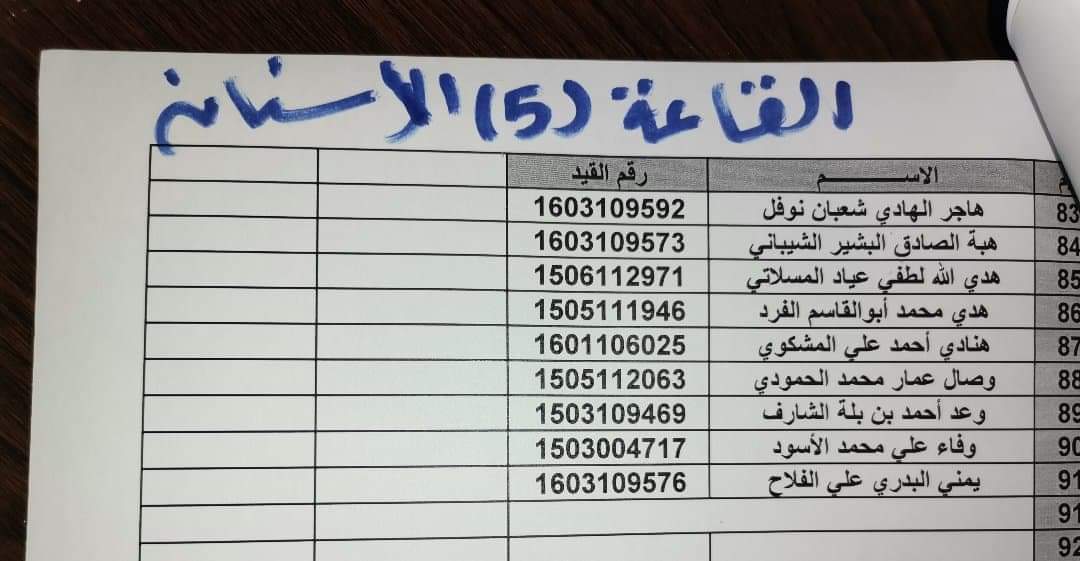 القاعة (5) الأسنان
م الاســـــــم رقم القيد
83 هاجر الهادي شعبان نوفل 1603109592
84 هبة الصادق البشير الشيباني 1603109573
85 هدي الله لطفي عياد المسلاتي 1506112971
86 هدي محمد أبوالقاسم الفرد 1505111946
87 هنادي أحمد علي المشكوي 1601106025
88 وصال عمار محمد الحمودي 1505112063
89 وعد أحمد بن بلة الشارف 1503109469
90 وفاء علي محمد الأسود 1503004717
91 يمني البدري علي الفلاح 1603109576
91
92